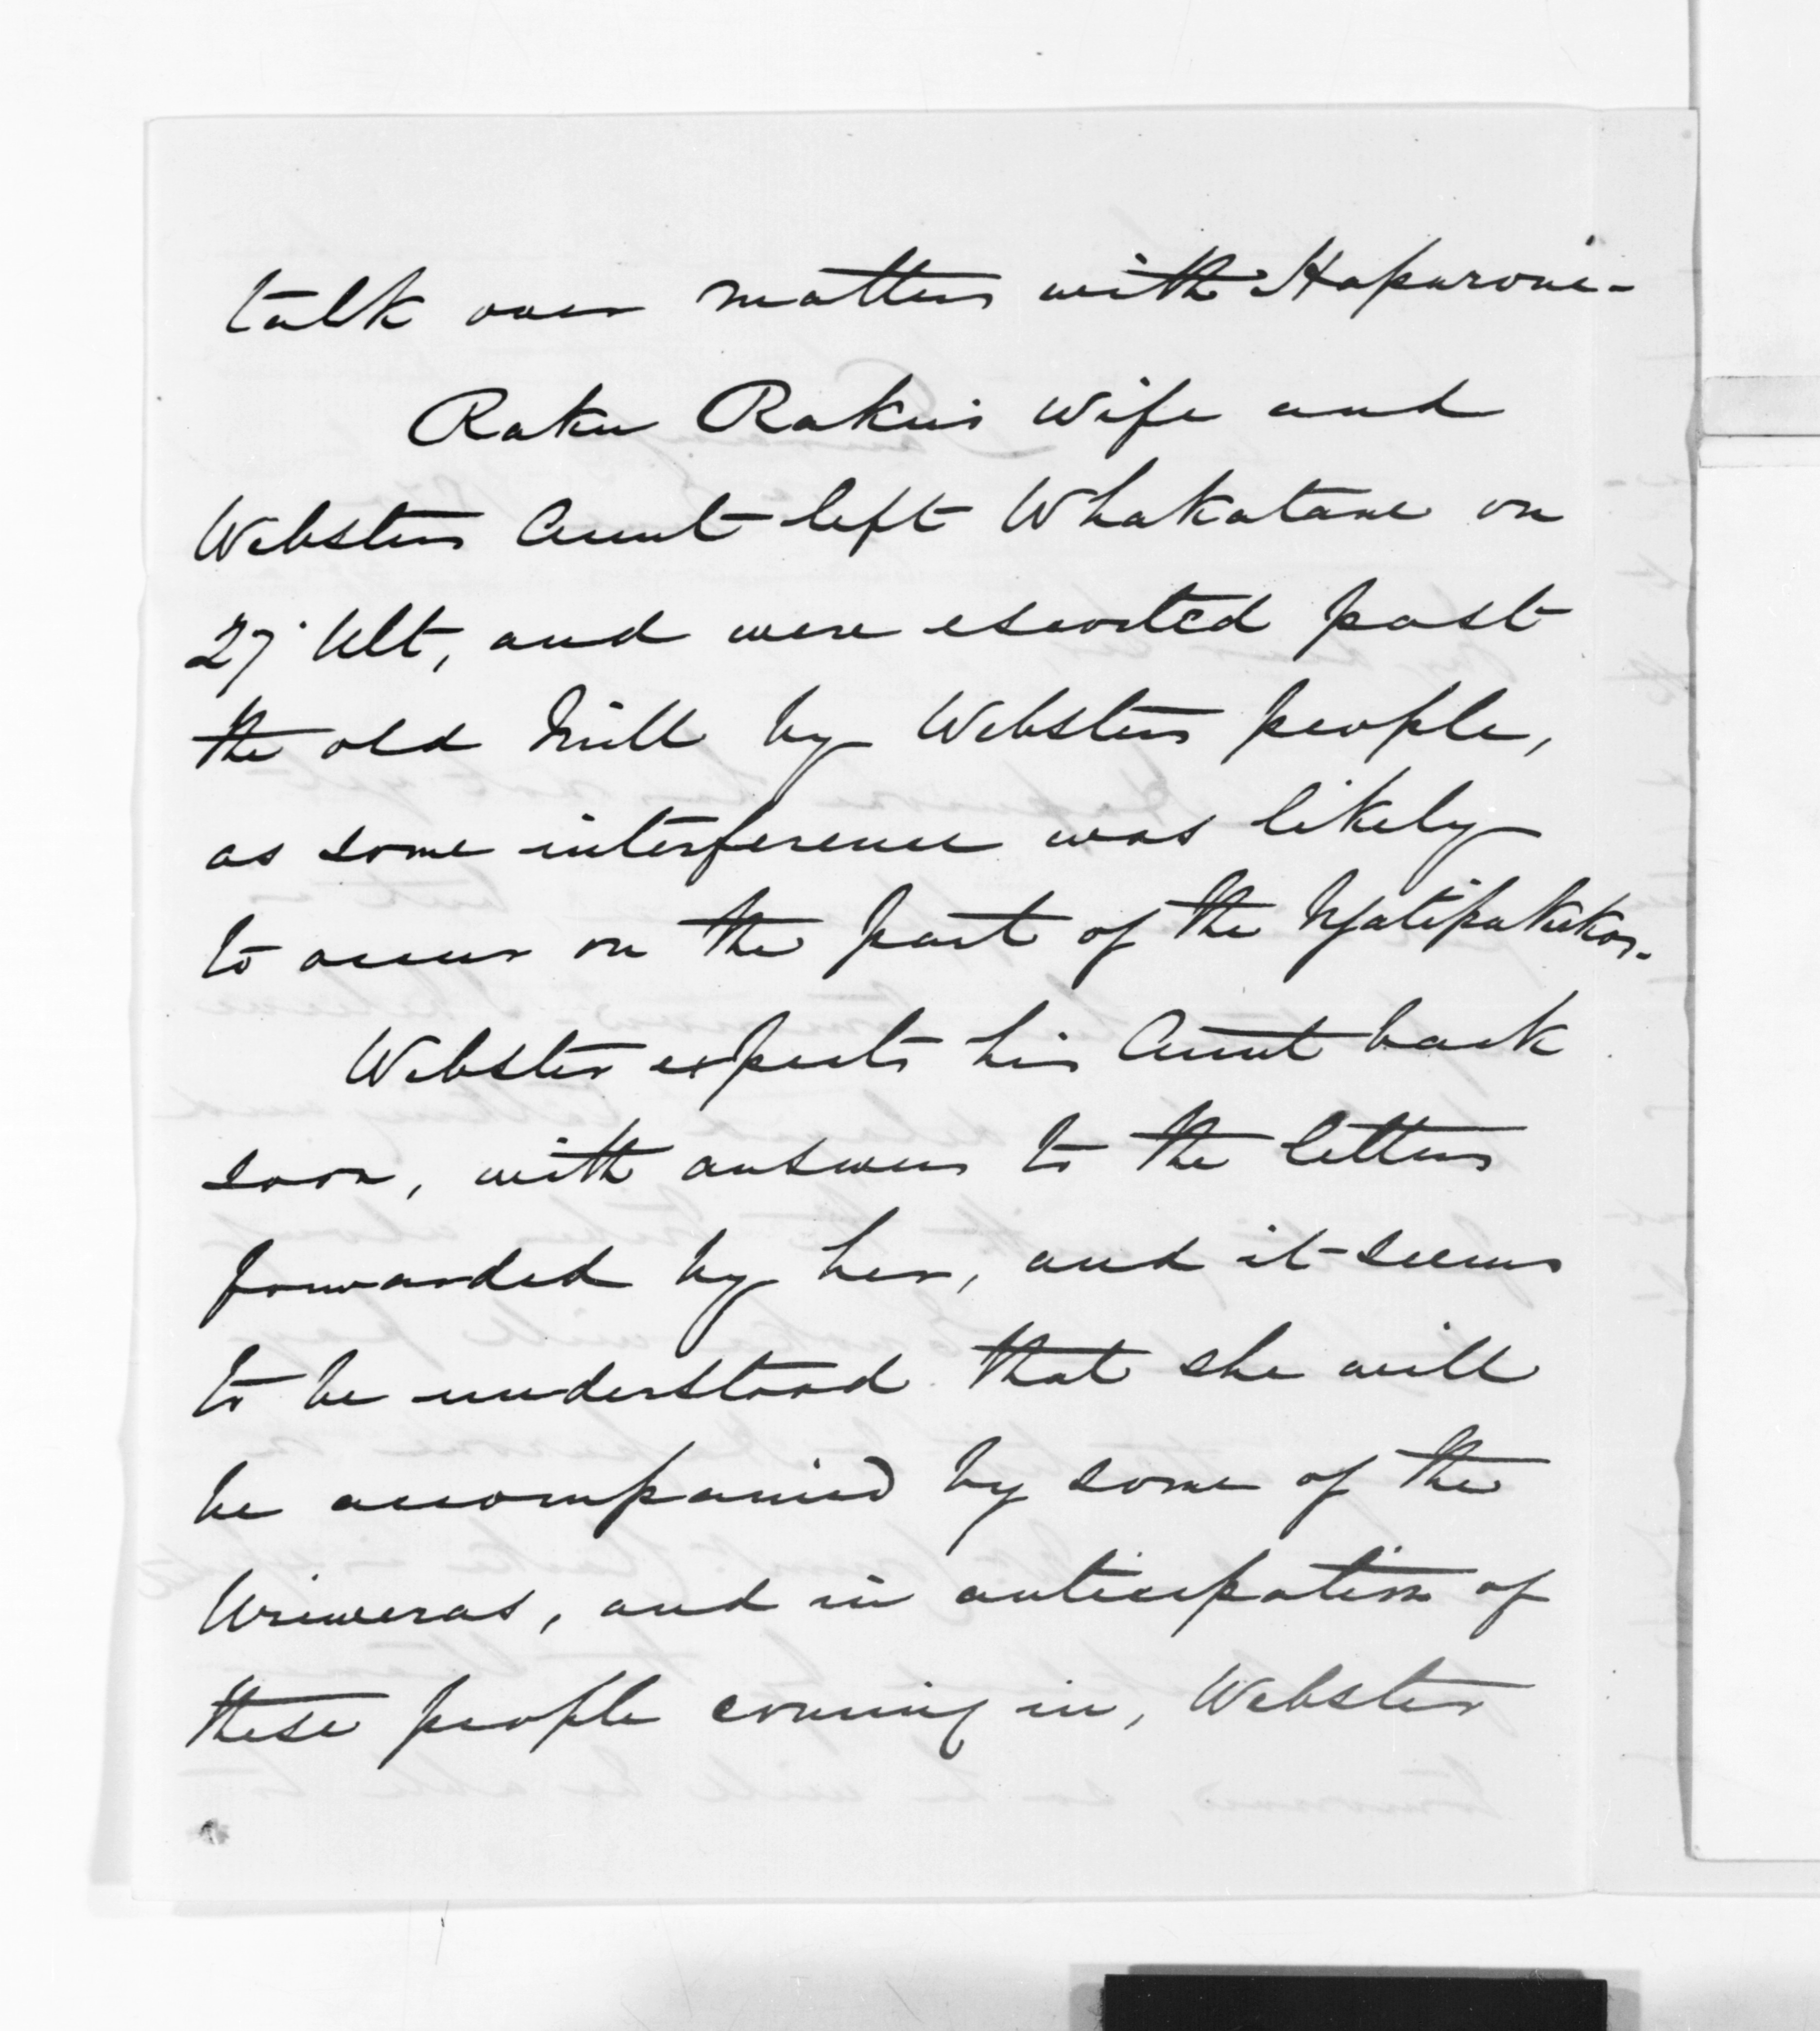 talk over matters with Hapurona.
Raku Raku's wife and
Websters Aunt left Whakatane on
27 Ult, and were escorted past
the old Mill by Websters people,
as some interference was likely
to occur on the part of the Ngatipukekos.
Webster expects his Aunt back
soon, with answers to the letters
forwarded by her, and it seems
to be understood that she will
be accompanied by some of the
Uriweras, and in anticipation of
these people coming in, Webster